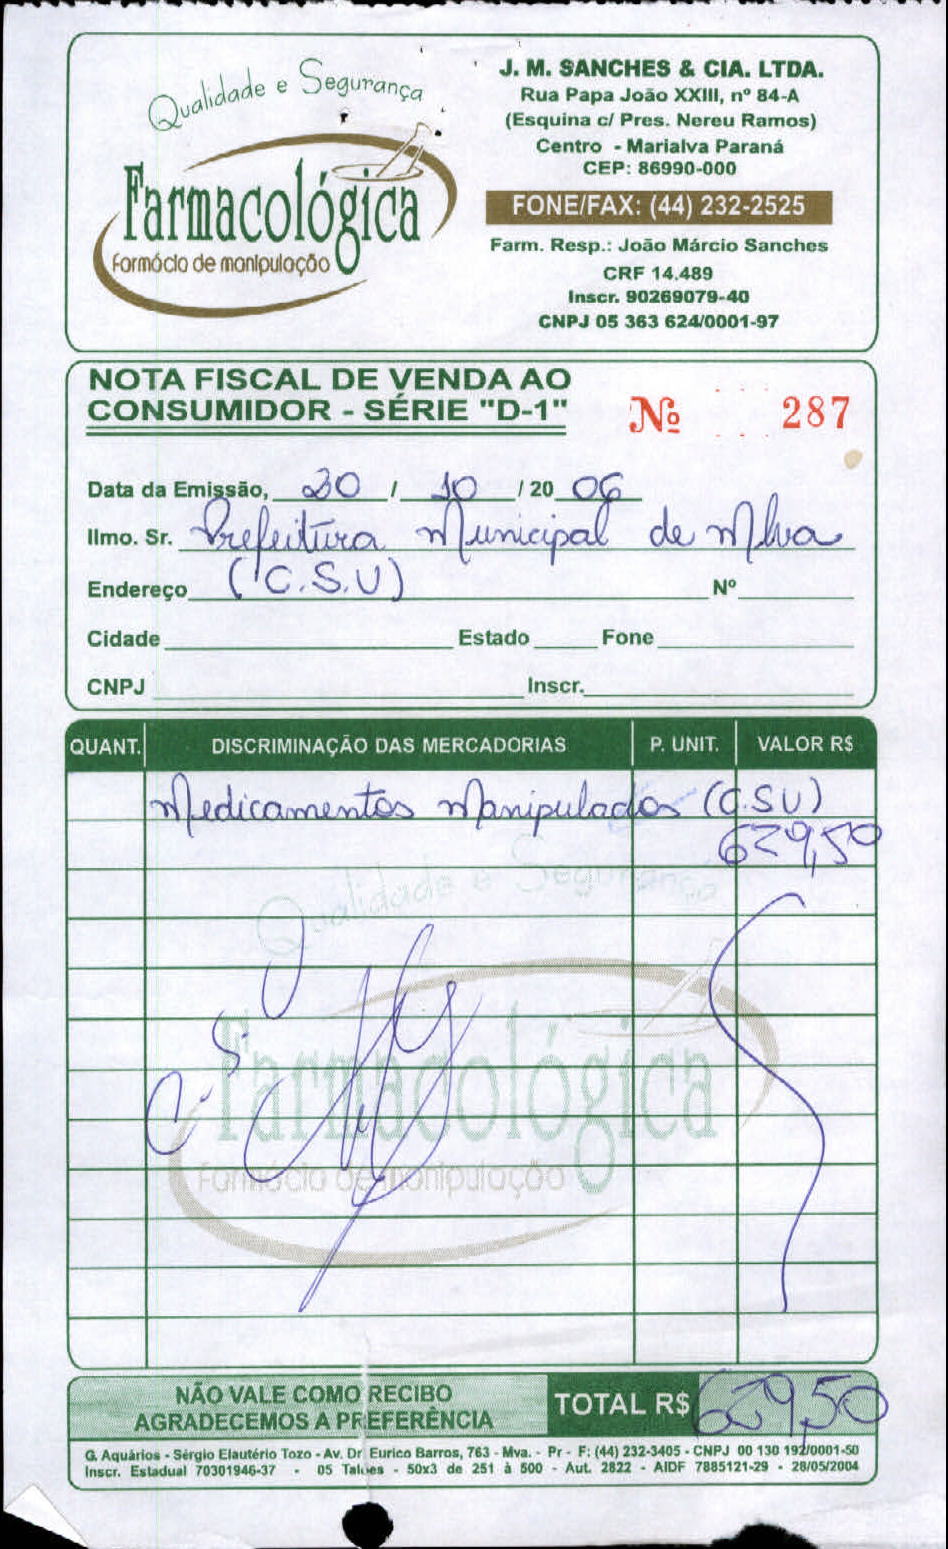 Qualidade e Segurança
Farmacológica
Farmácia de manipulação
J. M. SANCHES & CIA. LTDA.
Rua Papa João XXIII, nº 84-A
(Esquina c/ Pres. Nereu Ramos)
Centro - Marialva Paraná
CEP: 86990-000
FONE/FAX: (44) 232-2525
Farm. Resp.: João Márcio Sanches
CRF 14.489
Inscr. 90269079-40
CNPJ 05 363 624/0001-97
NOTA FISCAL DE VENDA AO
CONSUMIDOR - SÉRIE "D-1"
Nº 287
Data da Emissão, 30 / 10 / 20 06
Ilmo. Sr. Prefeitura Municipal de Mlva
Endereço (C.S.U) Nº
Cidade Estado Fone
CNPJ Inscr.
QUANT. DISCRIMINAÇÃO DAS MERCADORIAS P. UNIT. VALOR R$
Medicamentos Manipulados (C.S.U)
629,50
Qualidade e Segurança
C.S.U
Farmacológica
Farmácia de manipulação
NÃO VALE COMO RECIBO
AGRADECEMOS A PREFERÊNCIA
TOTAL R$ 629,50
G. Aquários - Sérgio Elautério Tozo - Av. Dr. Eurico Barros, 763 - Mva. - Pr - F: (44) 232-3405 - CNPJ 00 130 192/0001-50
Inscr. Estadual 70301946-37 - 05 Talões - 50x3 de 251 à 500 - Aut. 2822 - AIDF 7885121-29 - 28/05/2004